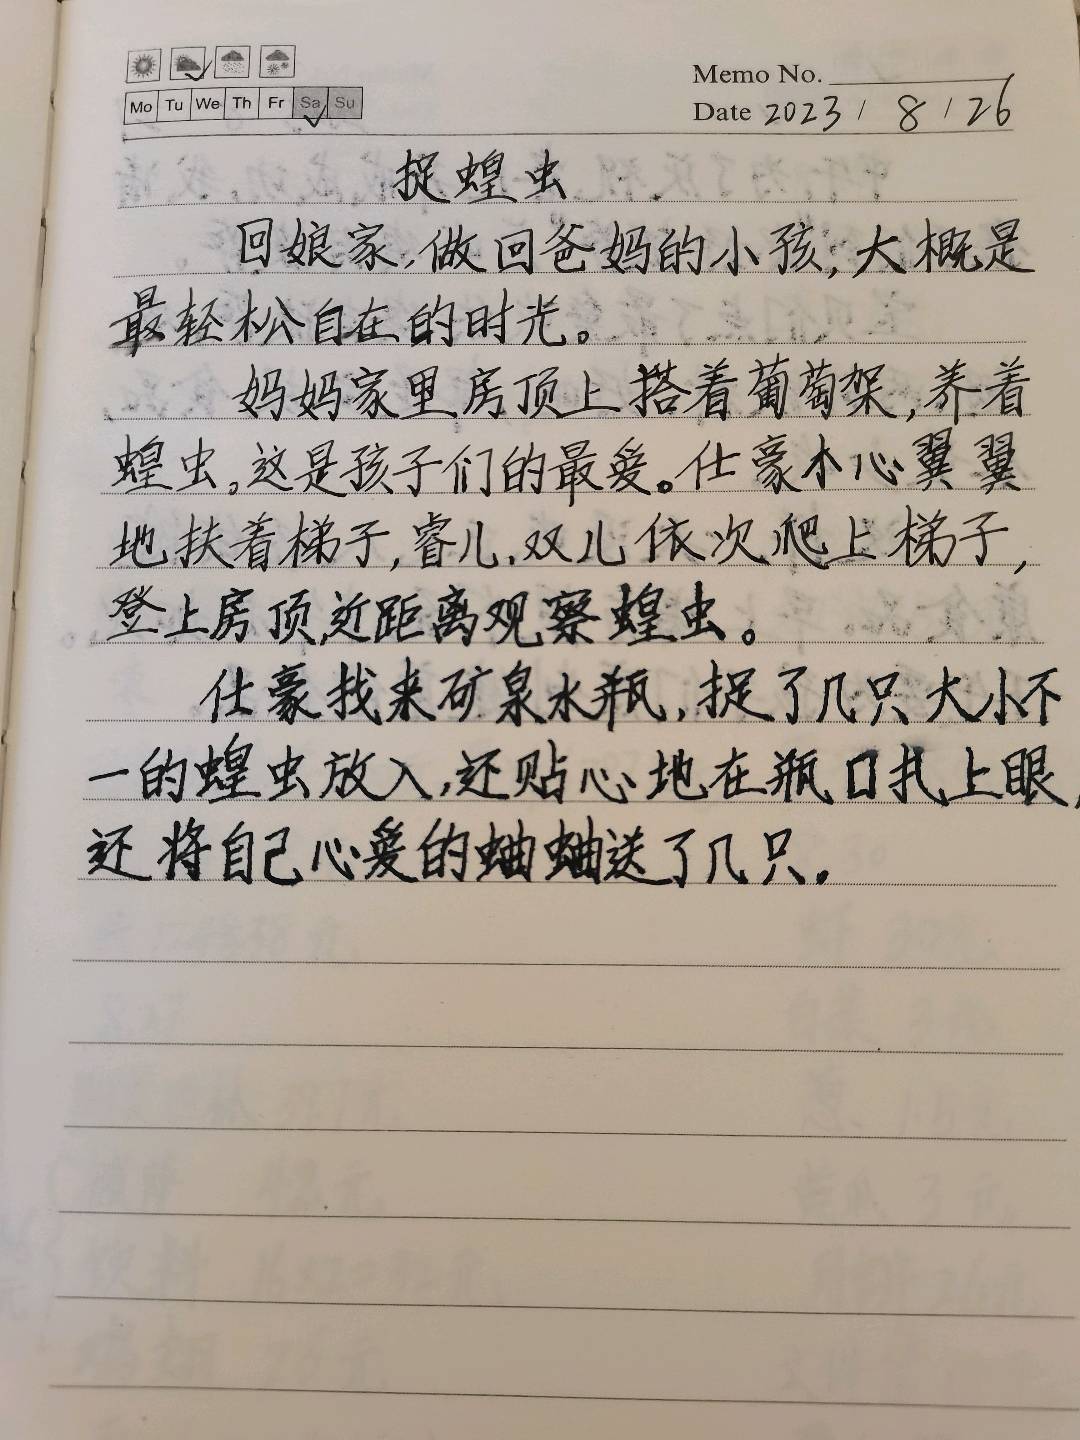 Memo No.
Mo Tu We Th Fr Sa Su
Date 2023 / 8 / 26
捉蝗虫
回娘家,做回爸妈的小孩,大概是
最轻松自在的时光。
妈妈家里房顶上搭着葡萄架,养着
蝗虫。这是孩子们的最爱。仕豪小心翼翼
地扶着梯子,睿儿.双儿依次爬上梯子,
登上房顶,近距离观察蝗虫。
仕豪找来矿泉水瓶,捉了几只大小不
一的蝗虫放入,还贴心地在瓶口扎上眼,
还将自己心爱的蛐蛐送了几只.